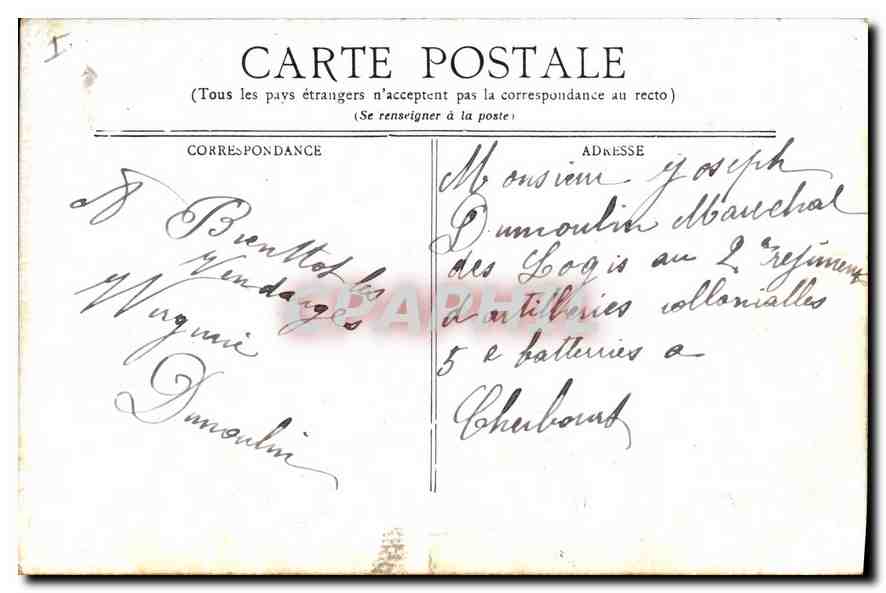 I.
CARTE POSTALE
(Tous les pays étrangers n'acceptent pas la correspondance au recto)
(Se renseigner à la poste)
CORRESPONDANCE
A Bienttot les
Vendanges
Virginie
Dumoulin
ADRESSE
Monsieur Joseph
Dumoulin Marechal
des Logis au 2e regiment
d'artilleries collonialles
5 e batterries a
Cherbourg
CPAPHIL